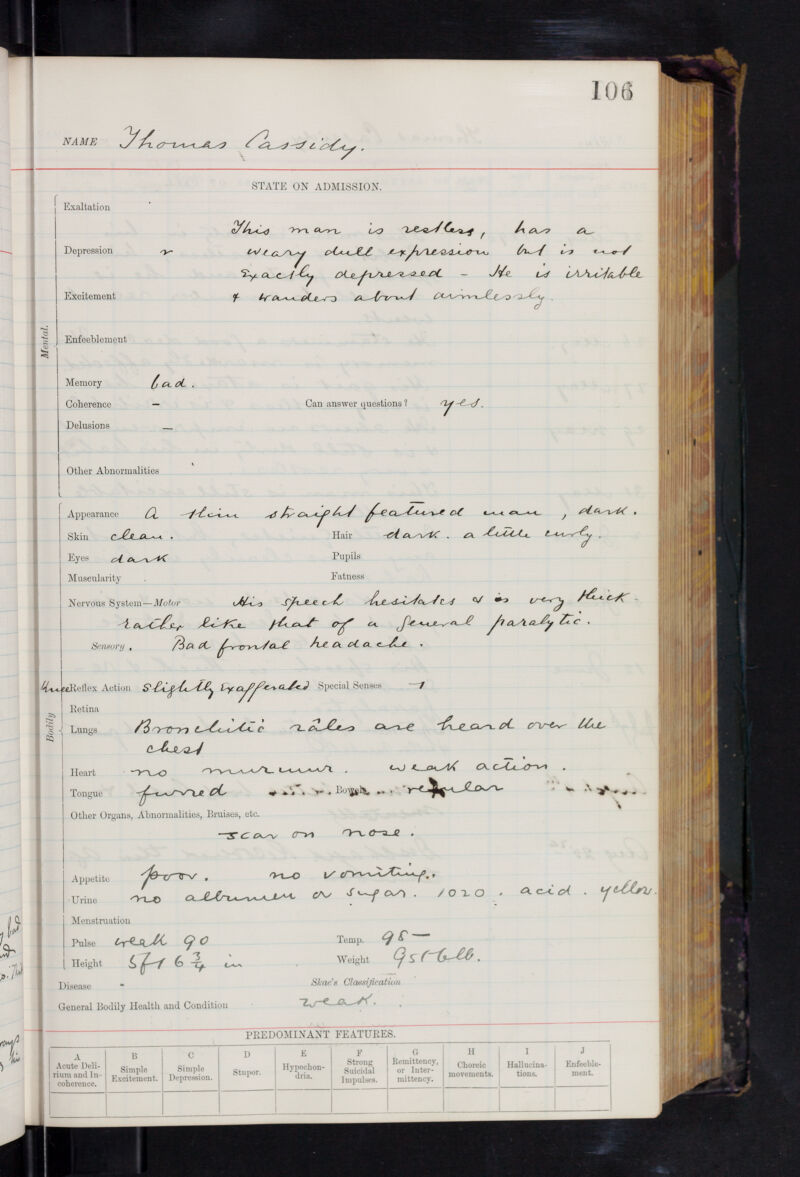 106
NAME Thomas Cassidy.
STATE ON ADMISSION.
Exaltation
This man is restless, has a
Depression weary dull expression but is not
Exactly depressed - He is irritable
Excitement & wanders about aimlessly.
Mental.
Enfeeblement
Memory bad.
Coherence – Can answer questions? yes.
Delusions –
Other Abnormalities
Appearance A thin straight featured man, dark.
Skin clean. Hair dark. a little curly.
Eyes dark Pupils
Muscularity Fatness
Nervous System—Motor His speech hesitates & is very thick.
rather like that of a general paralytic.
Sensory. Bad frontal headache.
Knee Reflex Action Slightly exaggerated Special Senses
Retina
Bodily
Lungs Bronchitic râles are heard over the
chest
Heart no murmur. weak action.
Tongue furred Bowels regular
Other Organs, Abnormalities, Bruises, etc.
scar on nose.
Appetite poor. no vomiting.
Urine no albumen or sugar. 1020. acid. yellow.
Menstruation
Pulse weak 90 Temp. 98 —
Height 5ft 6 3/4 in Weight 9st 6lb.
Disease Skae's Classification
General Bodily Health and Condition weak.
PREDOMINANT FEATURES.
A B C D E F G H I J
Acute Delirium and Incoherence. Simple Excitement. Simple Depression. Stupor. Hypochondria. Strong Suicidal Impulses. Remittency, or Intermittency. Choreic movements. Hallucinations. Enfeeblement.